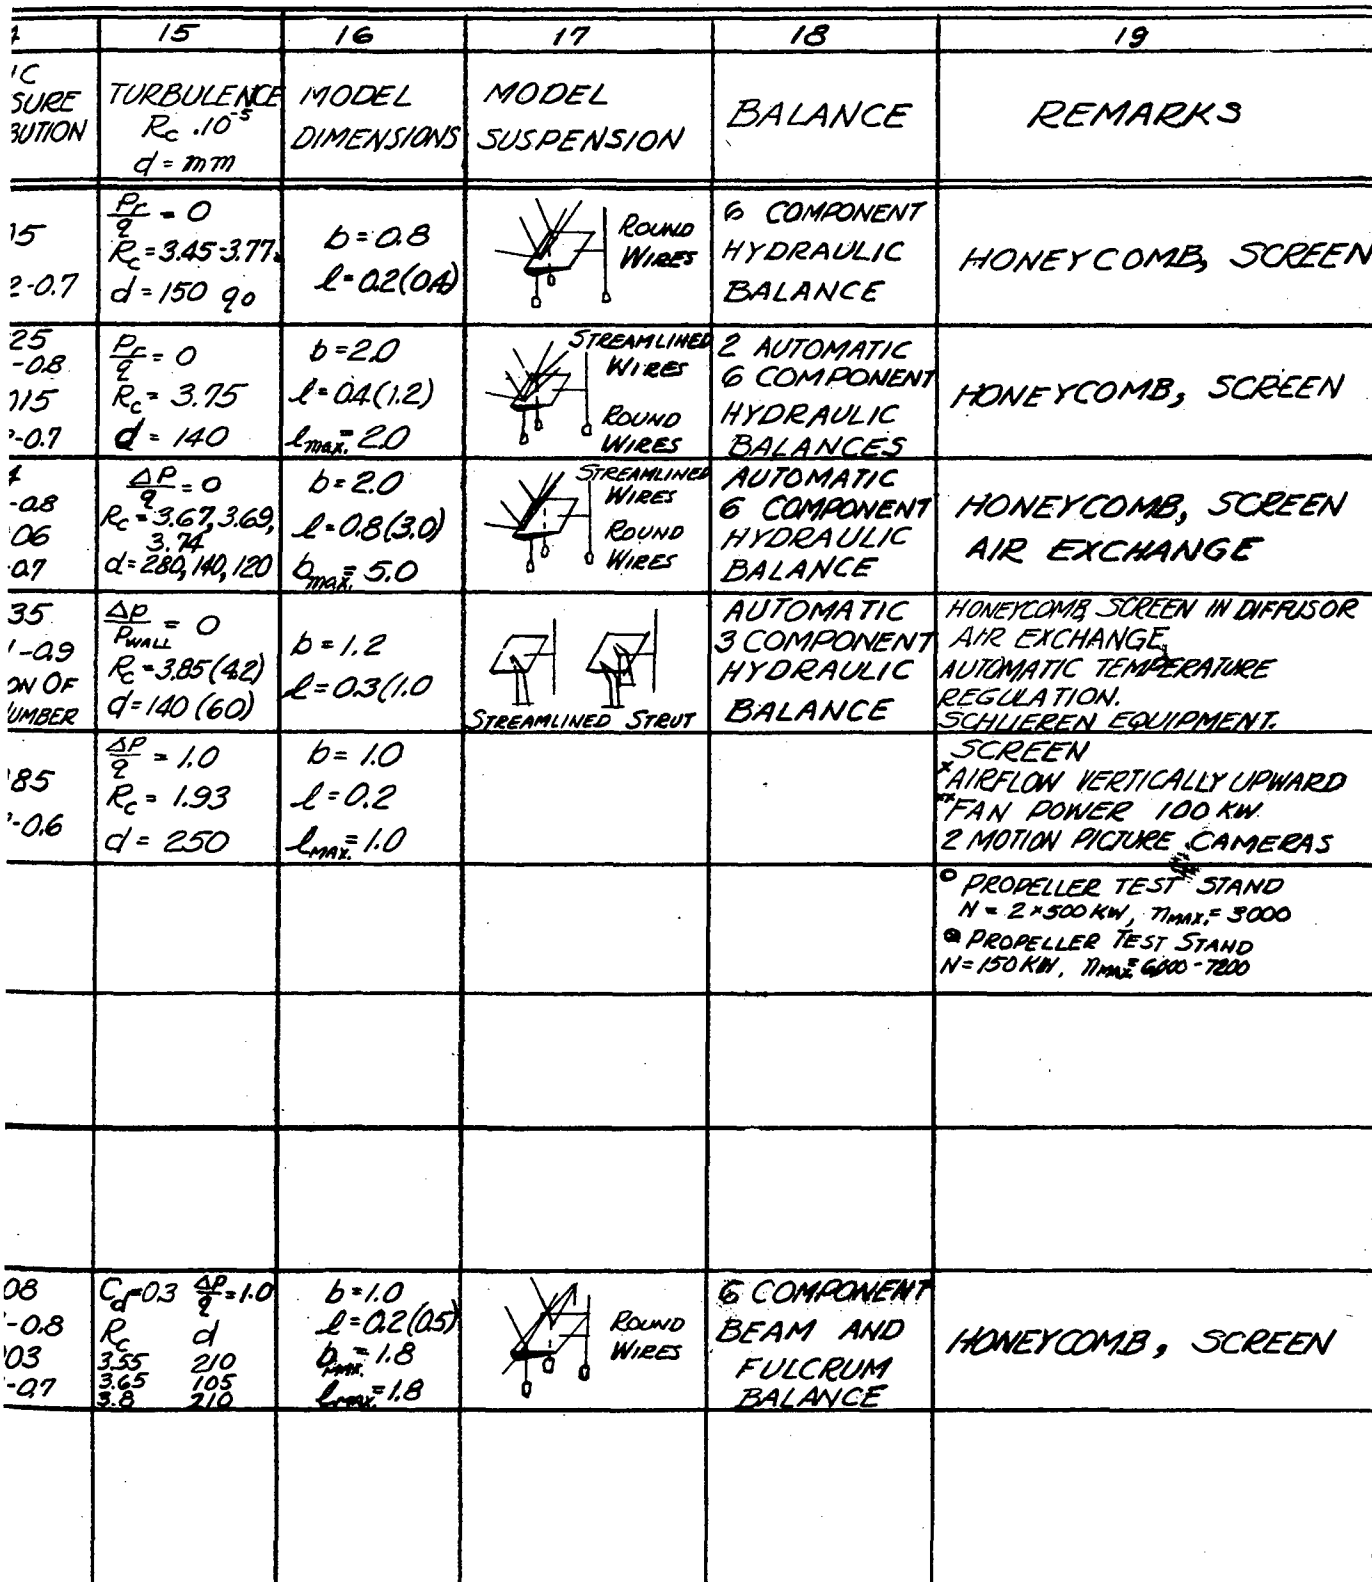 15 16 17 18 19
IC
SURE
BUTION
TURBULENCE
Rc .10⁻⁵
d = mm
MODEL
DIMENSIONS
MODEL
SUSPENSION
BALANCE
REMARKS
15
2-0.7
Pr/q = 0
Rc = 3.45-3.77
d = 150 90
b = 0.8
l = 0.2(0.4)
ROUND
WIRES
6 COMPONENT
HYDRAULIC
BALANCE
HONEYCOMB, SCREEN
25
-0.8
015
-0.7
Pr/q = 0
Rc = 3.75
d = 140
b = 2.0
l = 0.4(1.2)
lmax. = 2.0
STREAMLINED
WIRES
ROUND
WIRES
2 AUTOMATIC
6 COMPONENT
HYDRAULIC
BALANCES
HONEYCOMB, SCREEN
-0.8
06
0.7
ΔP/q = 0
Rc = 3.67, 3.69,
3.74
d = 280, 140, 120
b = 2.0
l = 0.8(3.0)
bmax. = 5.0
STREAMLINED
WIRES
ROUND
WIRES
AUTOMATIC
6 COMPONENT
HYDRAULIC
BALANCE
HONEYCOMB, SCREEN
AIR EXCHANGE
35
-0.9
ON OF
UMBER
ΔP/PWALL = 0
Rc = 3.85 (4.2)
d = 140 (60)
b = 1.2
l = 0.3(1.0
STREAMLINED STRUT
AUTOMATIC
3 COMPONENT
HYDRAULIC
BALANCE
HONEYCOMB, SCREEN IN DIFFUSOR
AIR EXCHANGE,
AUTOMATIC TEMPERATURE
REGULATION.
SCHLIEREN EQUIPMENT.
85
-0.6
ΔP/q = 1.0
Rc = 1.93
d = 250
b = 1.0
l = 0.2
lMAX. = 1.0
SCREEN
x AIRFLOW VERTICALLY UPWARD
xx FAN POWER 100 KW
2 MOTION PICTURE CAMERAS
o PROPELLER TEST STAND
N = 2×500 KW, nMAX. = 3000
PROPELLER TEST STAND
N = 150 KW, nMAX. = 6000-7200
08
-0.8
03
-0.7
Cd = 0.3 ΔP/q = 1.0
Rc d
3.55 210
3.65 105
3.8 210
b = 1.0
l = 0.2(0.5)
bMAX. = 1.8
lmax. = 1.8
ROUND
WIRES
6 COMPONENT
BEAM AND
FULCRUM
BALANCE
HONEYCOMB, SCREEN